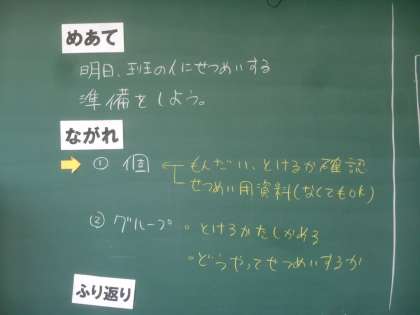 めあて
明日、班の人にせつめいする
準備をしよう。
ながれ
① 個 もんだい、とけるか確認
せつめい用資料(なくてもOK)
② グループ 。とけるかたしかめる
。どうやってせつめいするか
ふり返り